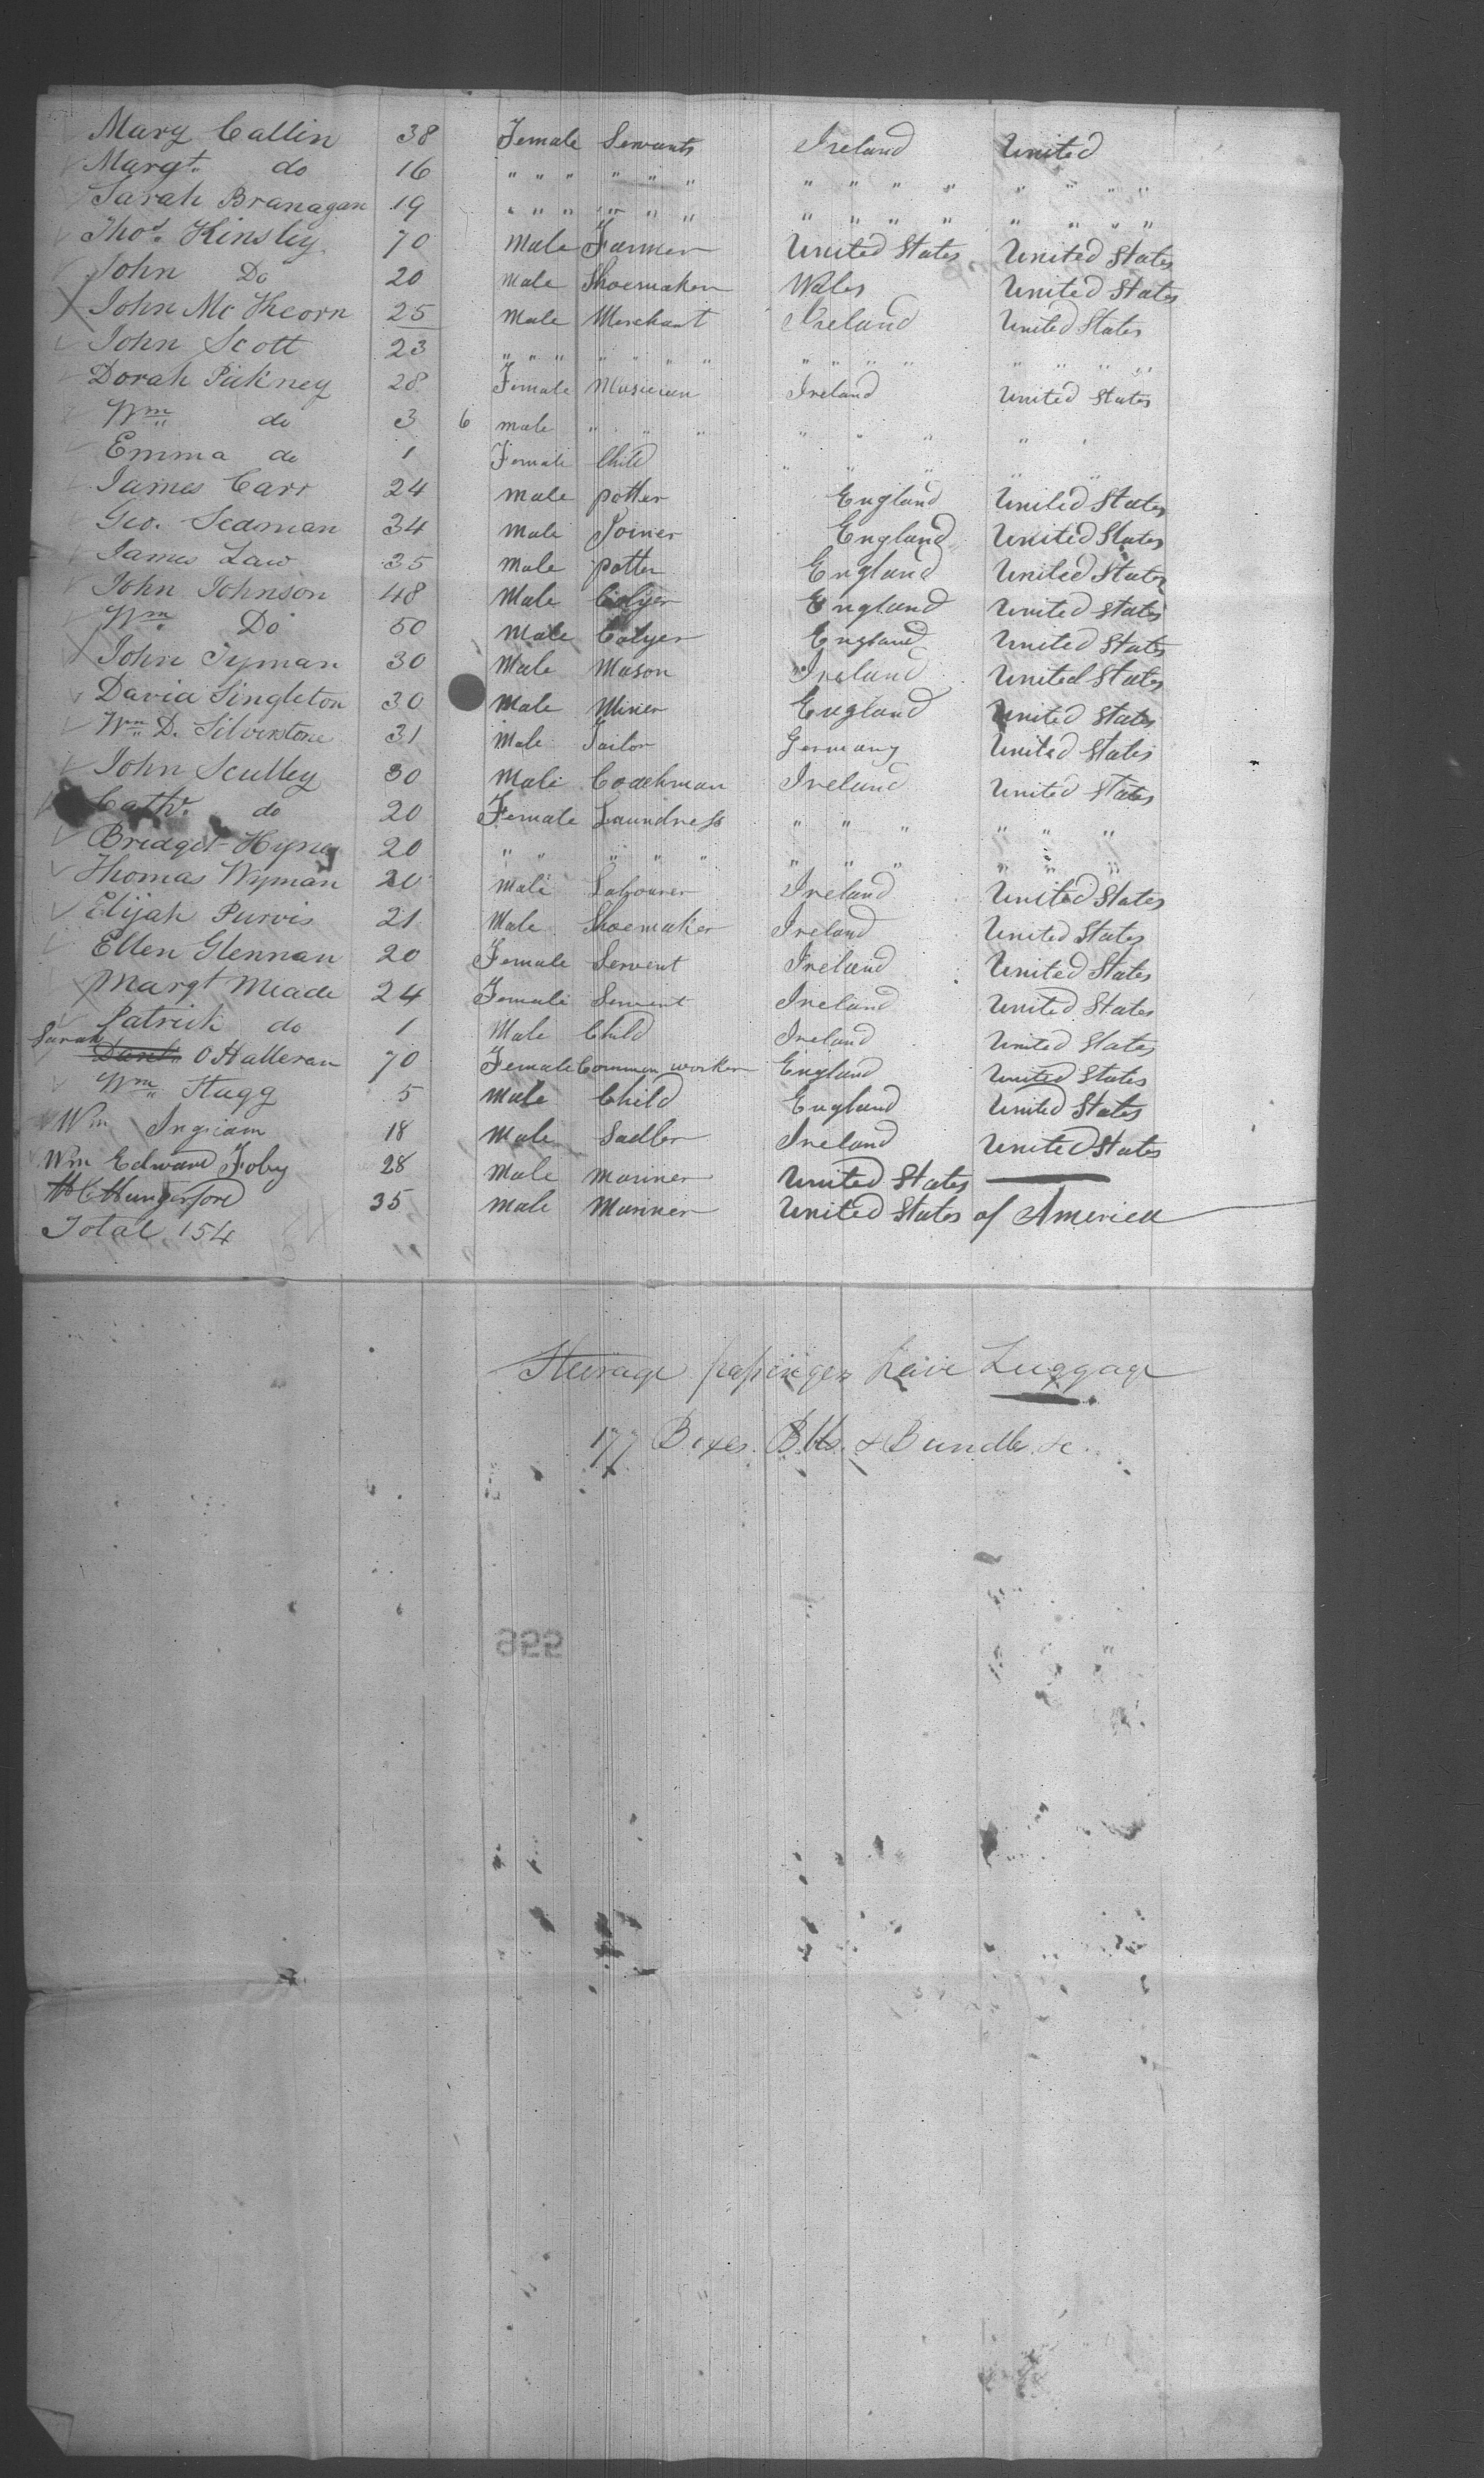 Mary Callin 38 Female Servants Ireland United
Margt. do 16 " " " " " " " " " " " " " "
Sarah Branagan 19 " " " " " " " " " " " " " "
Thos. Kinsley 70 Male Farmer United States United States
John Do 20 Male Shoemaker Wales United States
John Mc Keorn 25 Male Merchant Ireland United States
John Scott 23 " " " " " " " " " " " " " " "
Dorah Pickney 28 Female Musician Ireland United States
Wm do 3 6 male " " " " " " " "
Emma do 1 Female Child " " " " "
James Carr 24 male potter England United States
Geo. Seaman 34 Male Joiner England United States
James Law 35 Male potter England United States
John Johnson 48 Male Colyer England United States
Wm Do 50 Male Colyer England United States
John Tyman 30 Male Mason Ireland United States
David Singleton 30 Male Miner England United States
Wm D. Silverstone 31 Male Tailor Germany United States
John Sculley 30 Male Coachman Ireland United States
Cathe. do 20 Female Laundress " " " " " "
Bridget Hynes 20 " " " " " " " " " " "
Thomas Wyman 20 Male Labourer Ireland United States
Elijah Purvis 21 Male Shoemaker Ireland United States
Ellen Glennan 20 Female Servent Ireland United States
Margt Meade 24 Female Servent Ireland United States
Patrick do 1 Male Child Ireland United States
Sarah O Halleran 70 Female Common worker England United States
Wm Stagg 5 Male Child England United States
Wm Ingram 18 Male Sadler Ireland United States
Wm Edward Foby 28 Male Mariner United States
H C Hungerford 35 Male Mariner United States of America
Total 154
Steerage passengers have Luggage
177 Boxes Bbls. & Bundls &c.